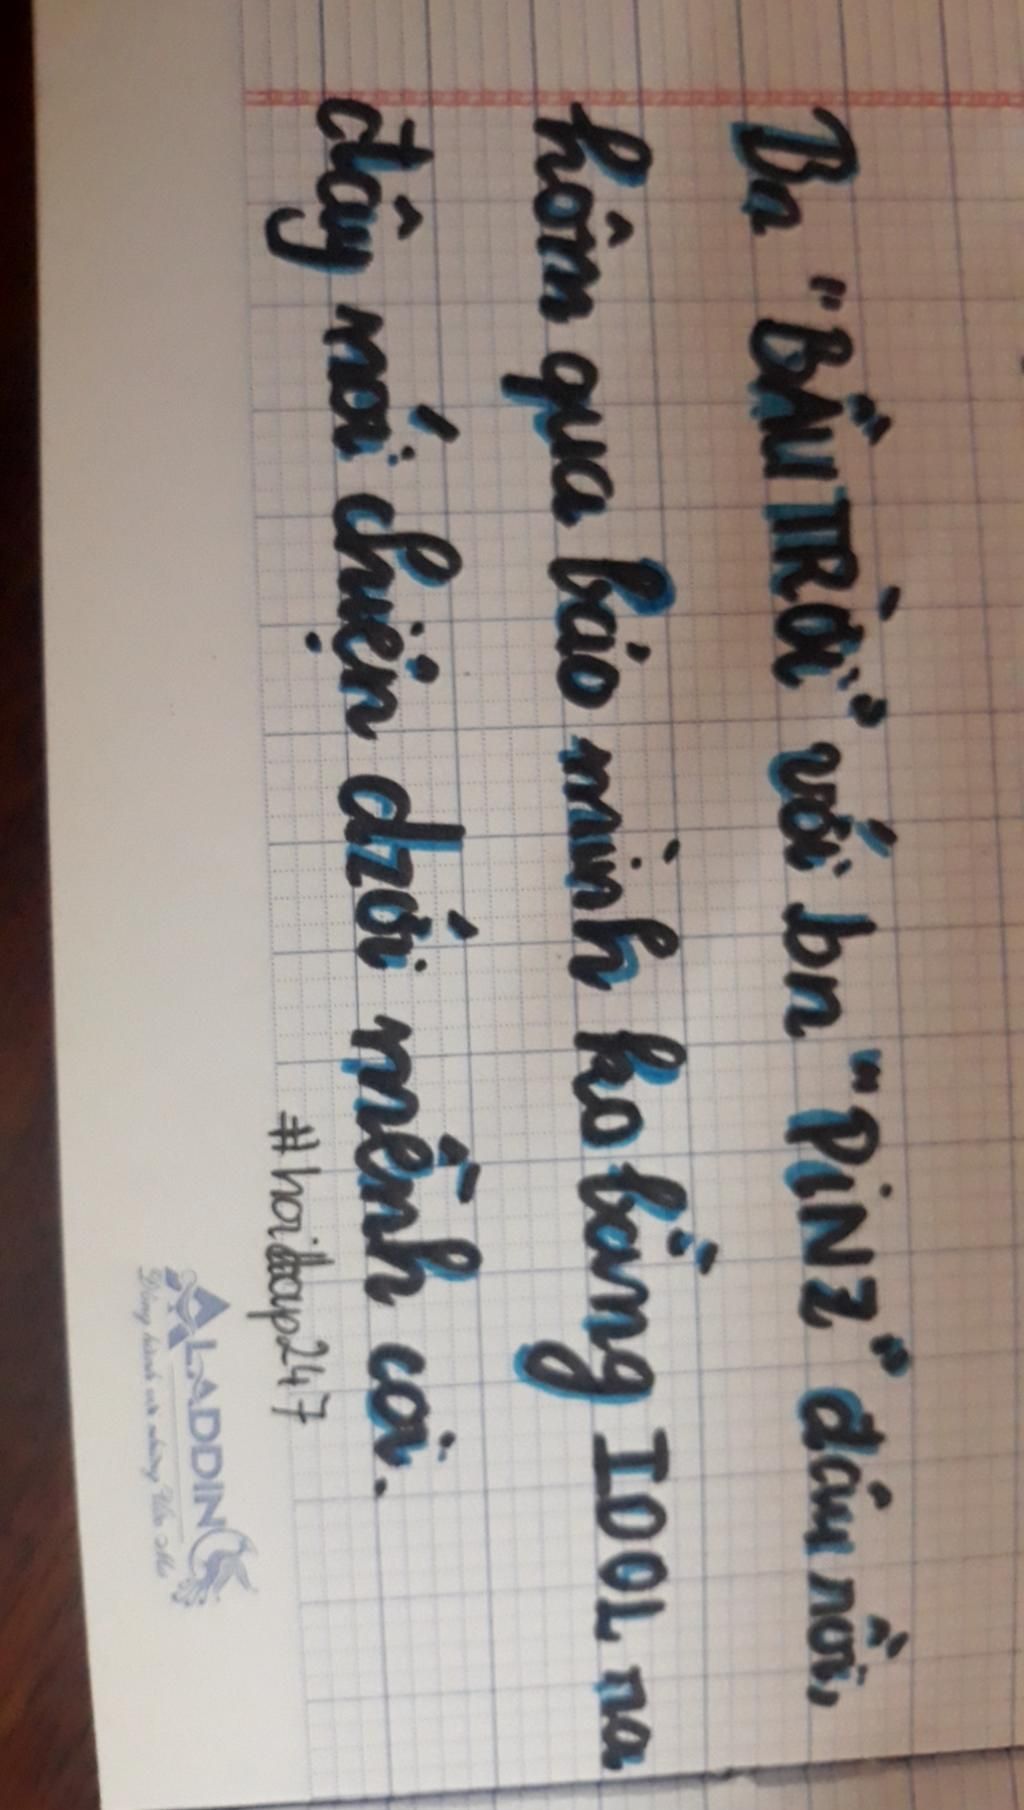 Bn "BẦU TRỜI" với bn "PiNZ" đâu nồi,
hôm qua bảo mình ko bằng IDOL na
đây nói chiện dzới mềnh coi.
#hoidap247
ALADDIN